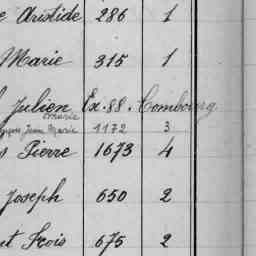 e Aristide 286 1
Marie 315 1
Julien Ex. 88. Combourg
Marie
Jean Marie 1172 3
s Pierre 1673 4
Joseph 650 2
t Frois 675 2